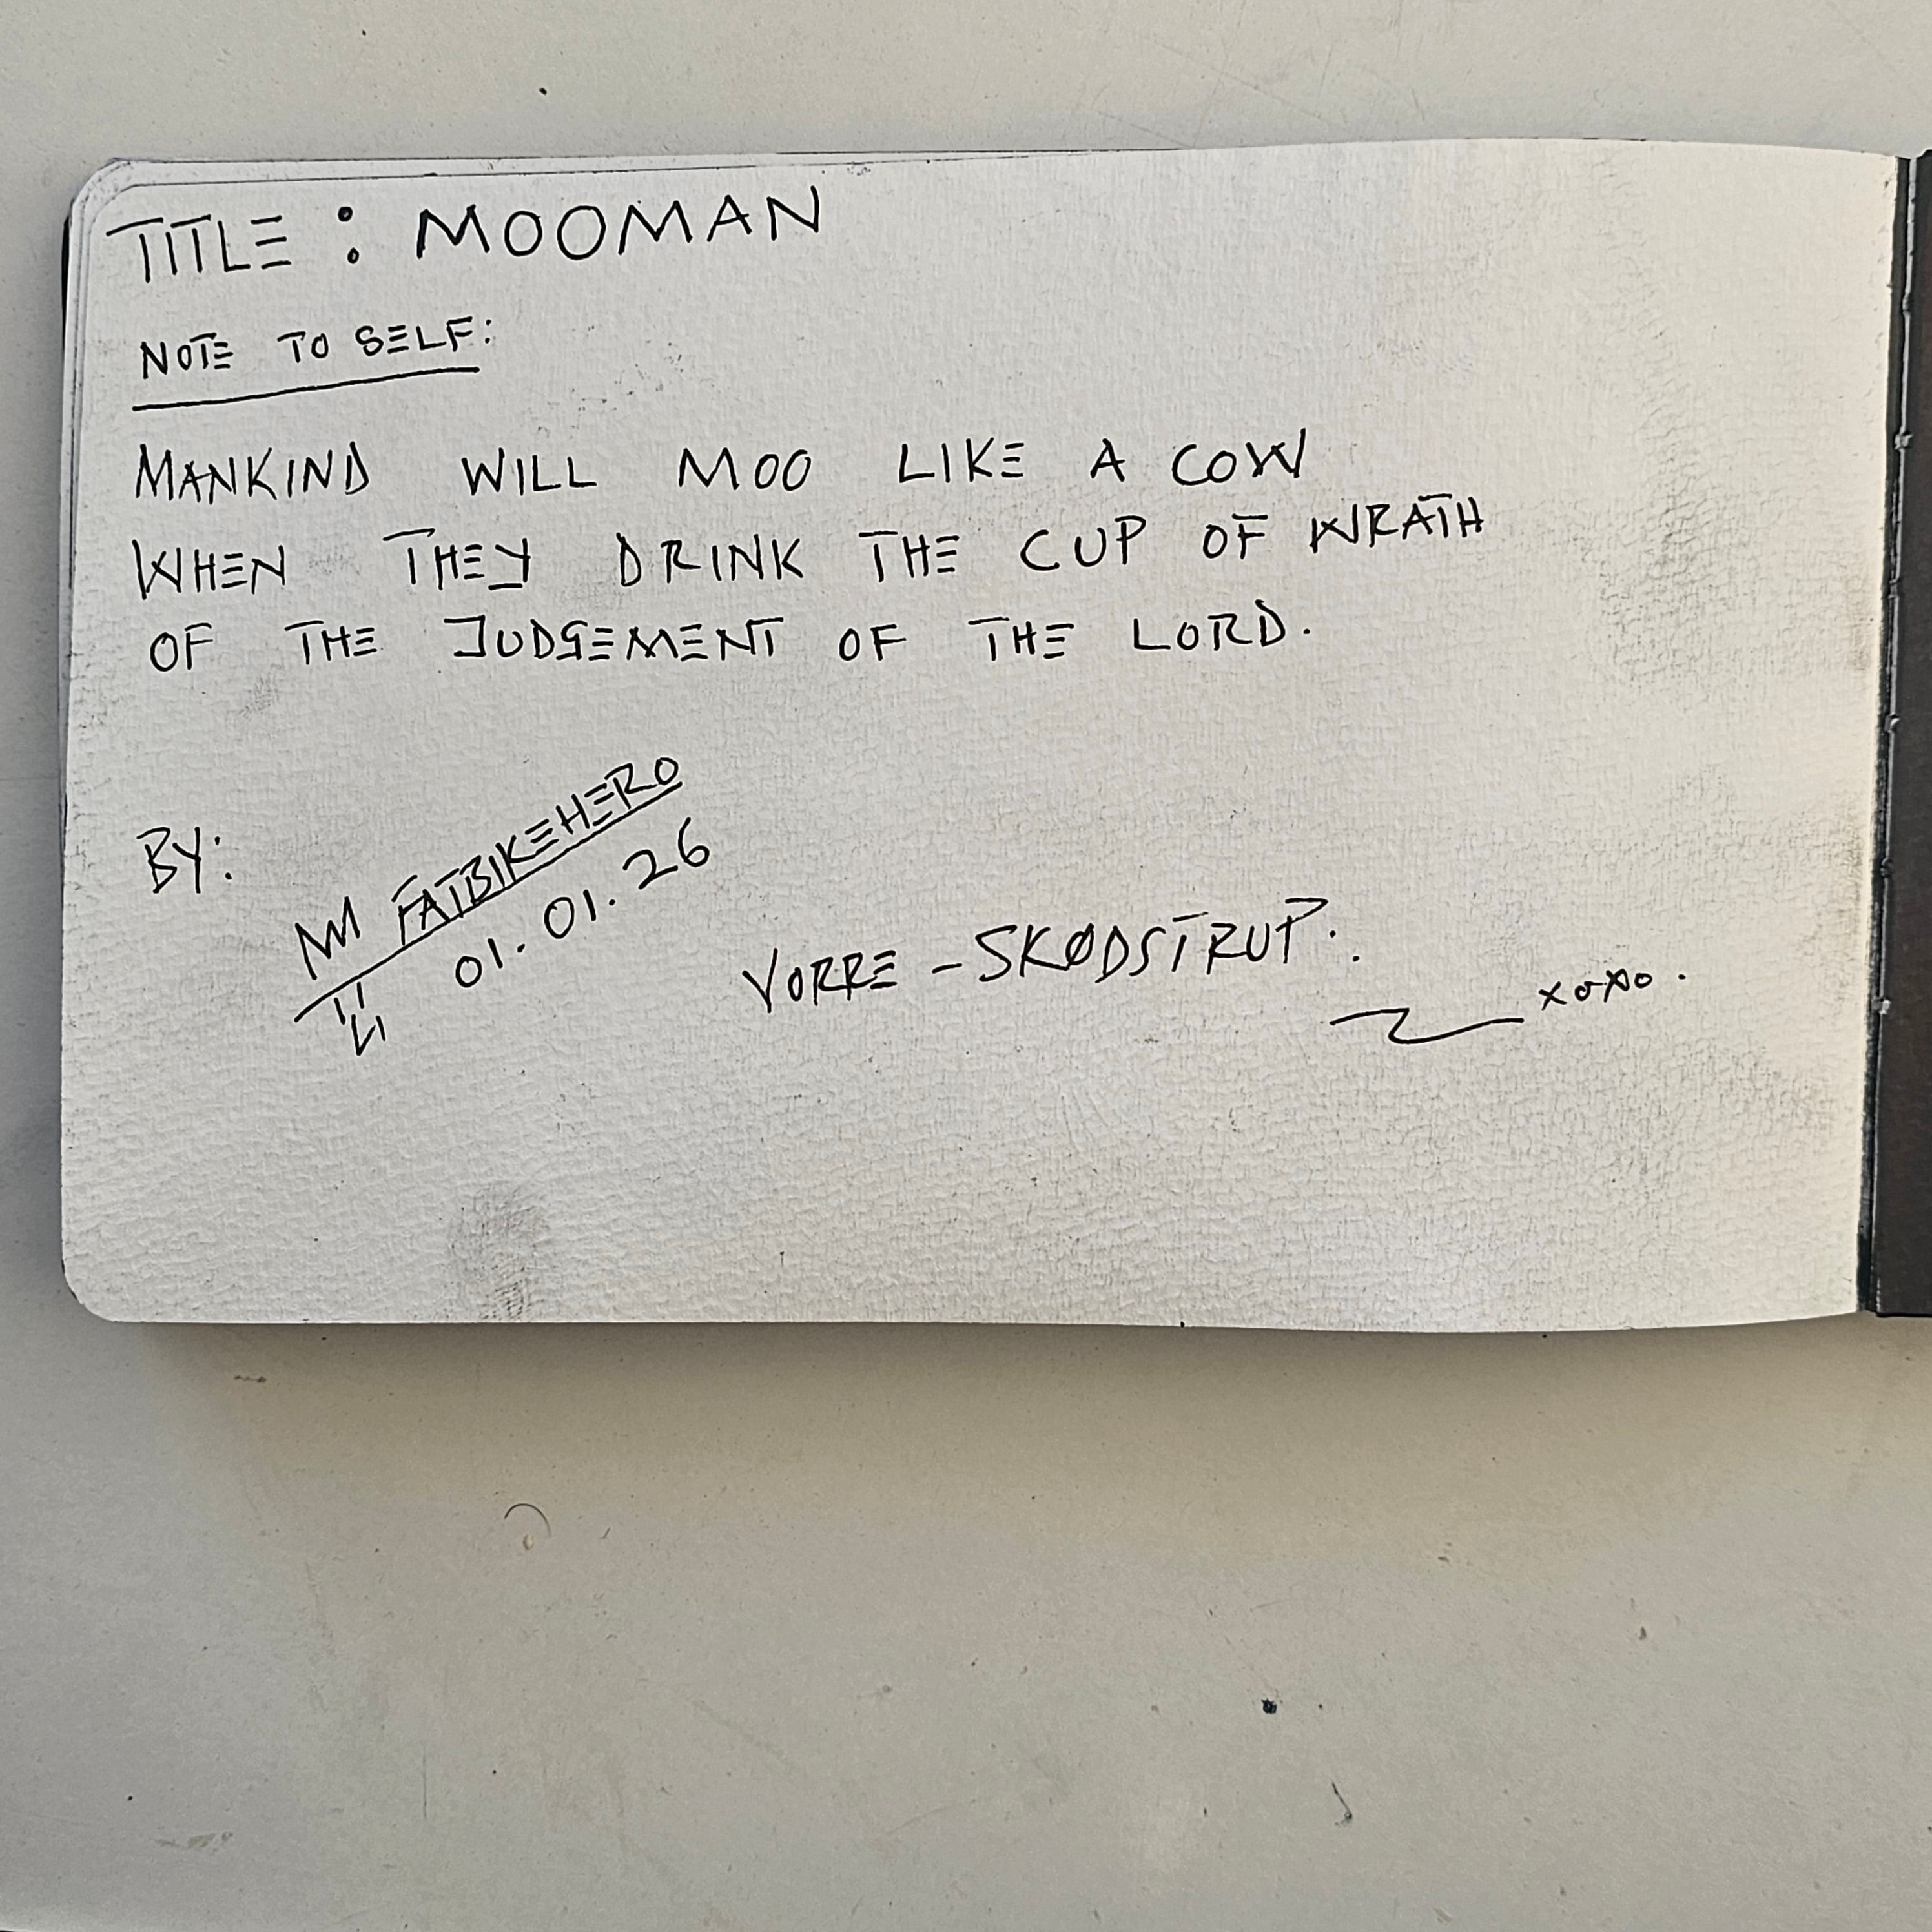 TITLE : MOOMAN
NOTE TO SELF:
MANKIND WILL MOO LIKE A COW
WHEN THEY DRINK THE CUP OF WRATH
OF THE JUDGEMENT OF THE LORD.
BY: FATBIKEHERO
01.01.26
VORRE - SKØDSTRUP.
xoxo.